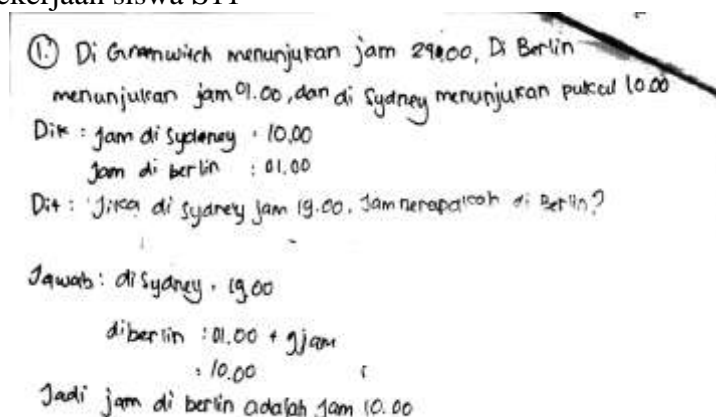 ekerjaan siswa S11
1. Di Greenwich menunjukan jam 24.00, Di Berlin
menunjukan jam 01.00, dan di Sydney menunjukan pukul 10.00
Dik : Jam di Sydeney : 10.00
Jam di berlin : 01.00
Dit : Jika di Sydney jam 19.00. Jam berapakah di Berlin?
Jawab : di Sydney : 19.00
diberlin : 01.00 + 9jam
: 10.00
Jadi jam di berlin adalah Jam 10.00